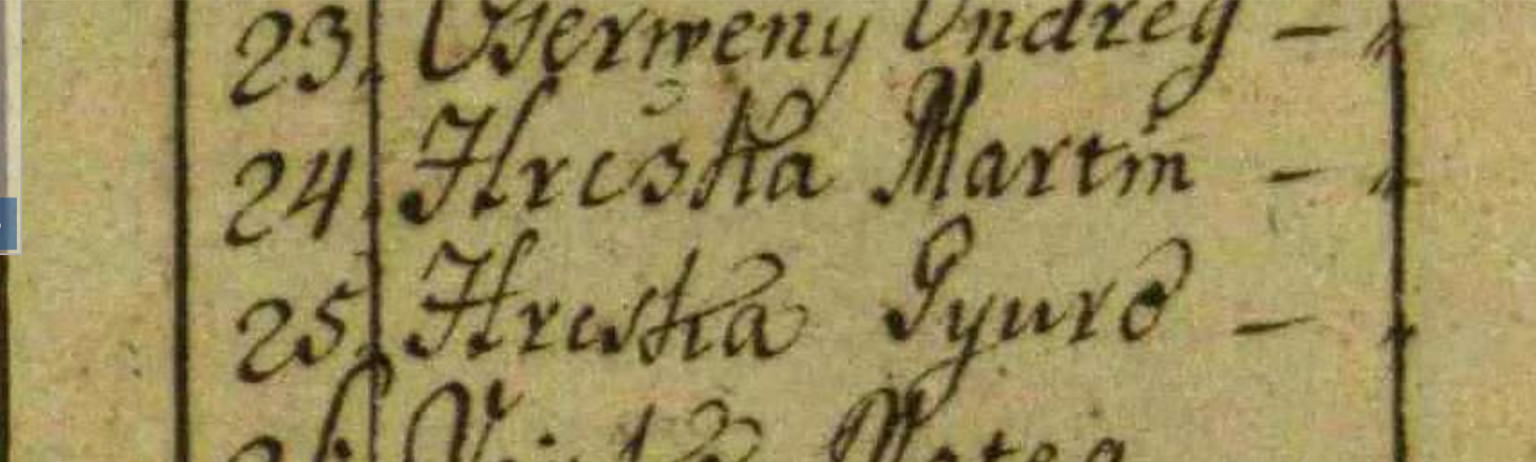 23. Cserweny Ondreg –
24. Hrcska Martin –
25. Hrcska Gyurò –
26.